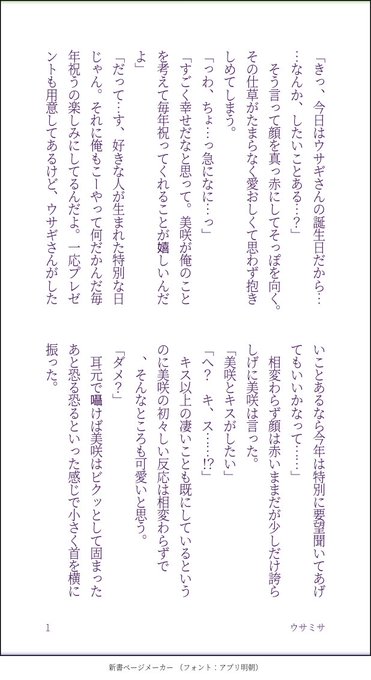 「きっ、今日はウサギさんの誕生日だから…
…なんか、したいことある…?」
そう言って顔を真っ赤にしてそっぽを向く。
その仕草がたまらなく愛おしくて思わず抱き
しめてしまう。
「っわ、ちょ…っ急になに…っ」
「すごく幸せだなと思って。美咲が俺のこと
を考えて毎年祝ってくれることが嬉しいんだ
よ」
「だって…す、好きな人が生まれた特別な日
じゃん。それに俺もこーやって何だかんだ毎
年祝うの楽しみにしてるんだよ。一応プレゼ
ントも用意してあるけど、ウサギさんがした
いことあるなら今年は特別に要望聞いてあげ
てもいいかなって……」
相変わらず顔は赤いままだが少しだけ誇ら
しげに美咲は言った。
「美咲とキスがしたい」
「へ? キ、ス……!?」
キス以上の凄いことも既にしているという
のに美咲の初々しい反応は相変わらずで
、そんなところも可愛いと思う。
「ダメ?」
耳元で囁けば美咲はビクッとして固まった
あと恐る恐るといった感じで小さく首を横に
振った。
1
ウサミサ
新書ページメーカー (フォント:アプリ明朝)